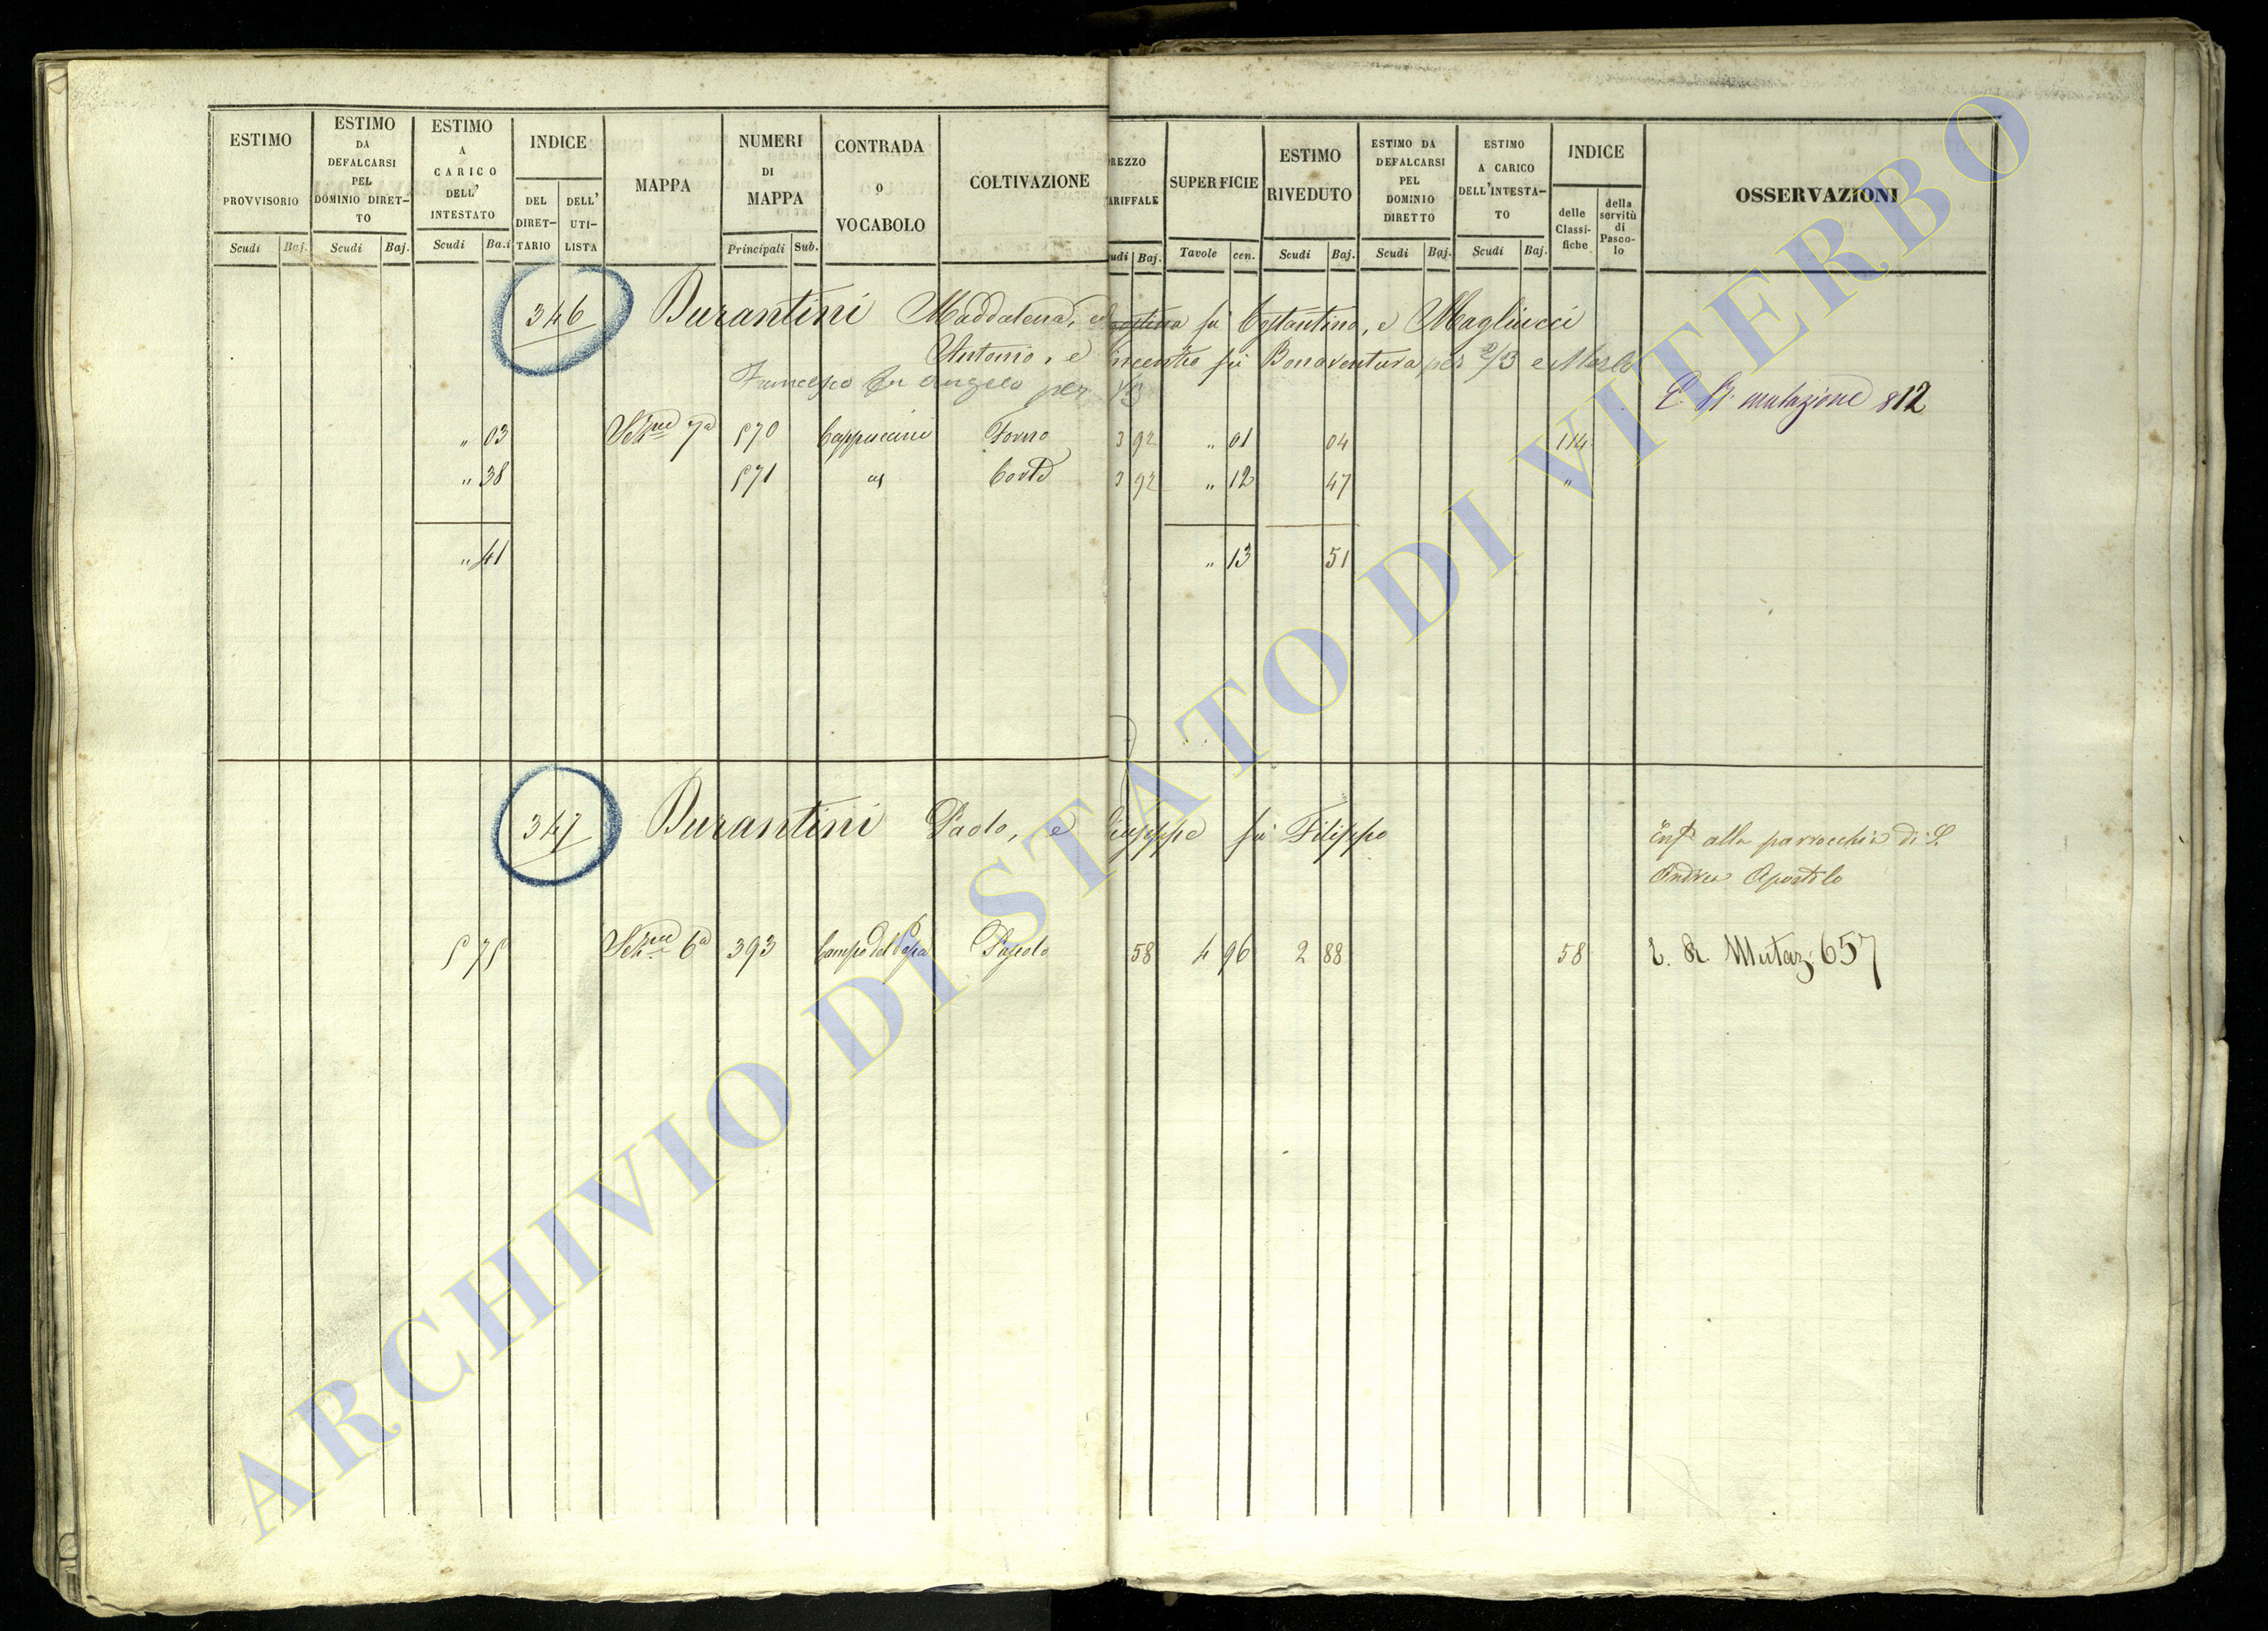 ESTIMO PROVVISORIO Scudi Baj.
ESTIMO DA DEFALCARSI PEL DOMINIO DIRET-TO Scudi Baj.
ESTIMO A CARICO DELL' INTESTATO Scudi Ba.i
INDICE DEL DIRET-TARIO DELL' UTI-LISTA
MAPPA
NUMERI DI MAPPA Principali Sub.
CONTRADA o VOCABOLO
COLTIVAZIONE
REZZO ARIFFALE udi Baj.
SUPERFICIE Tavole cen.
ESTIMO RIVEDUTO Scudi Baj.
ESTIMO DA DEFALCARSI PEL DOMINIO DIRETTO Scudi Baj.
ESTIMO A CARICO DELL'INTESTA-TO Scudi Baj.
INDICE delle Classi-fiche della servitù di Pasco-lo
OSSERVAZIONI
346 Burantini Maddalena, fù Costantino, e Magliucci
Antonio, e incenzo fù Bonaventura per 2/3 e
Francesco fu Angelo per 1/3
E. R. mutazione 812
" 03 Sezne 7a 570 Cappuccini Forno 3 92 " 01 04 114
" 38 571 Corte 3 92 " 12 47 "
" 41 " 13 51
347 Burantini Paolo, e iuseppe fù Filippo
Enfa alla parrocchia di S.
Andrea Apostolo
5 75 Sezne 6a 393 Campo del Papa Pascolo 58 4 96 2 88 58 E. R. Mutaz. 657
ARCHIVIO DI STATO DI VITERBO